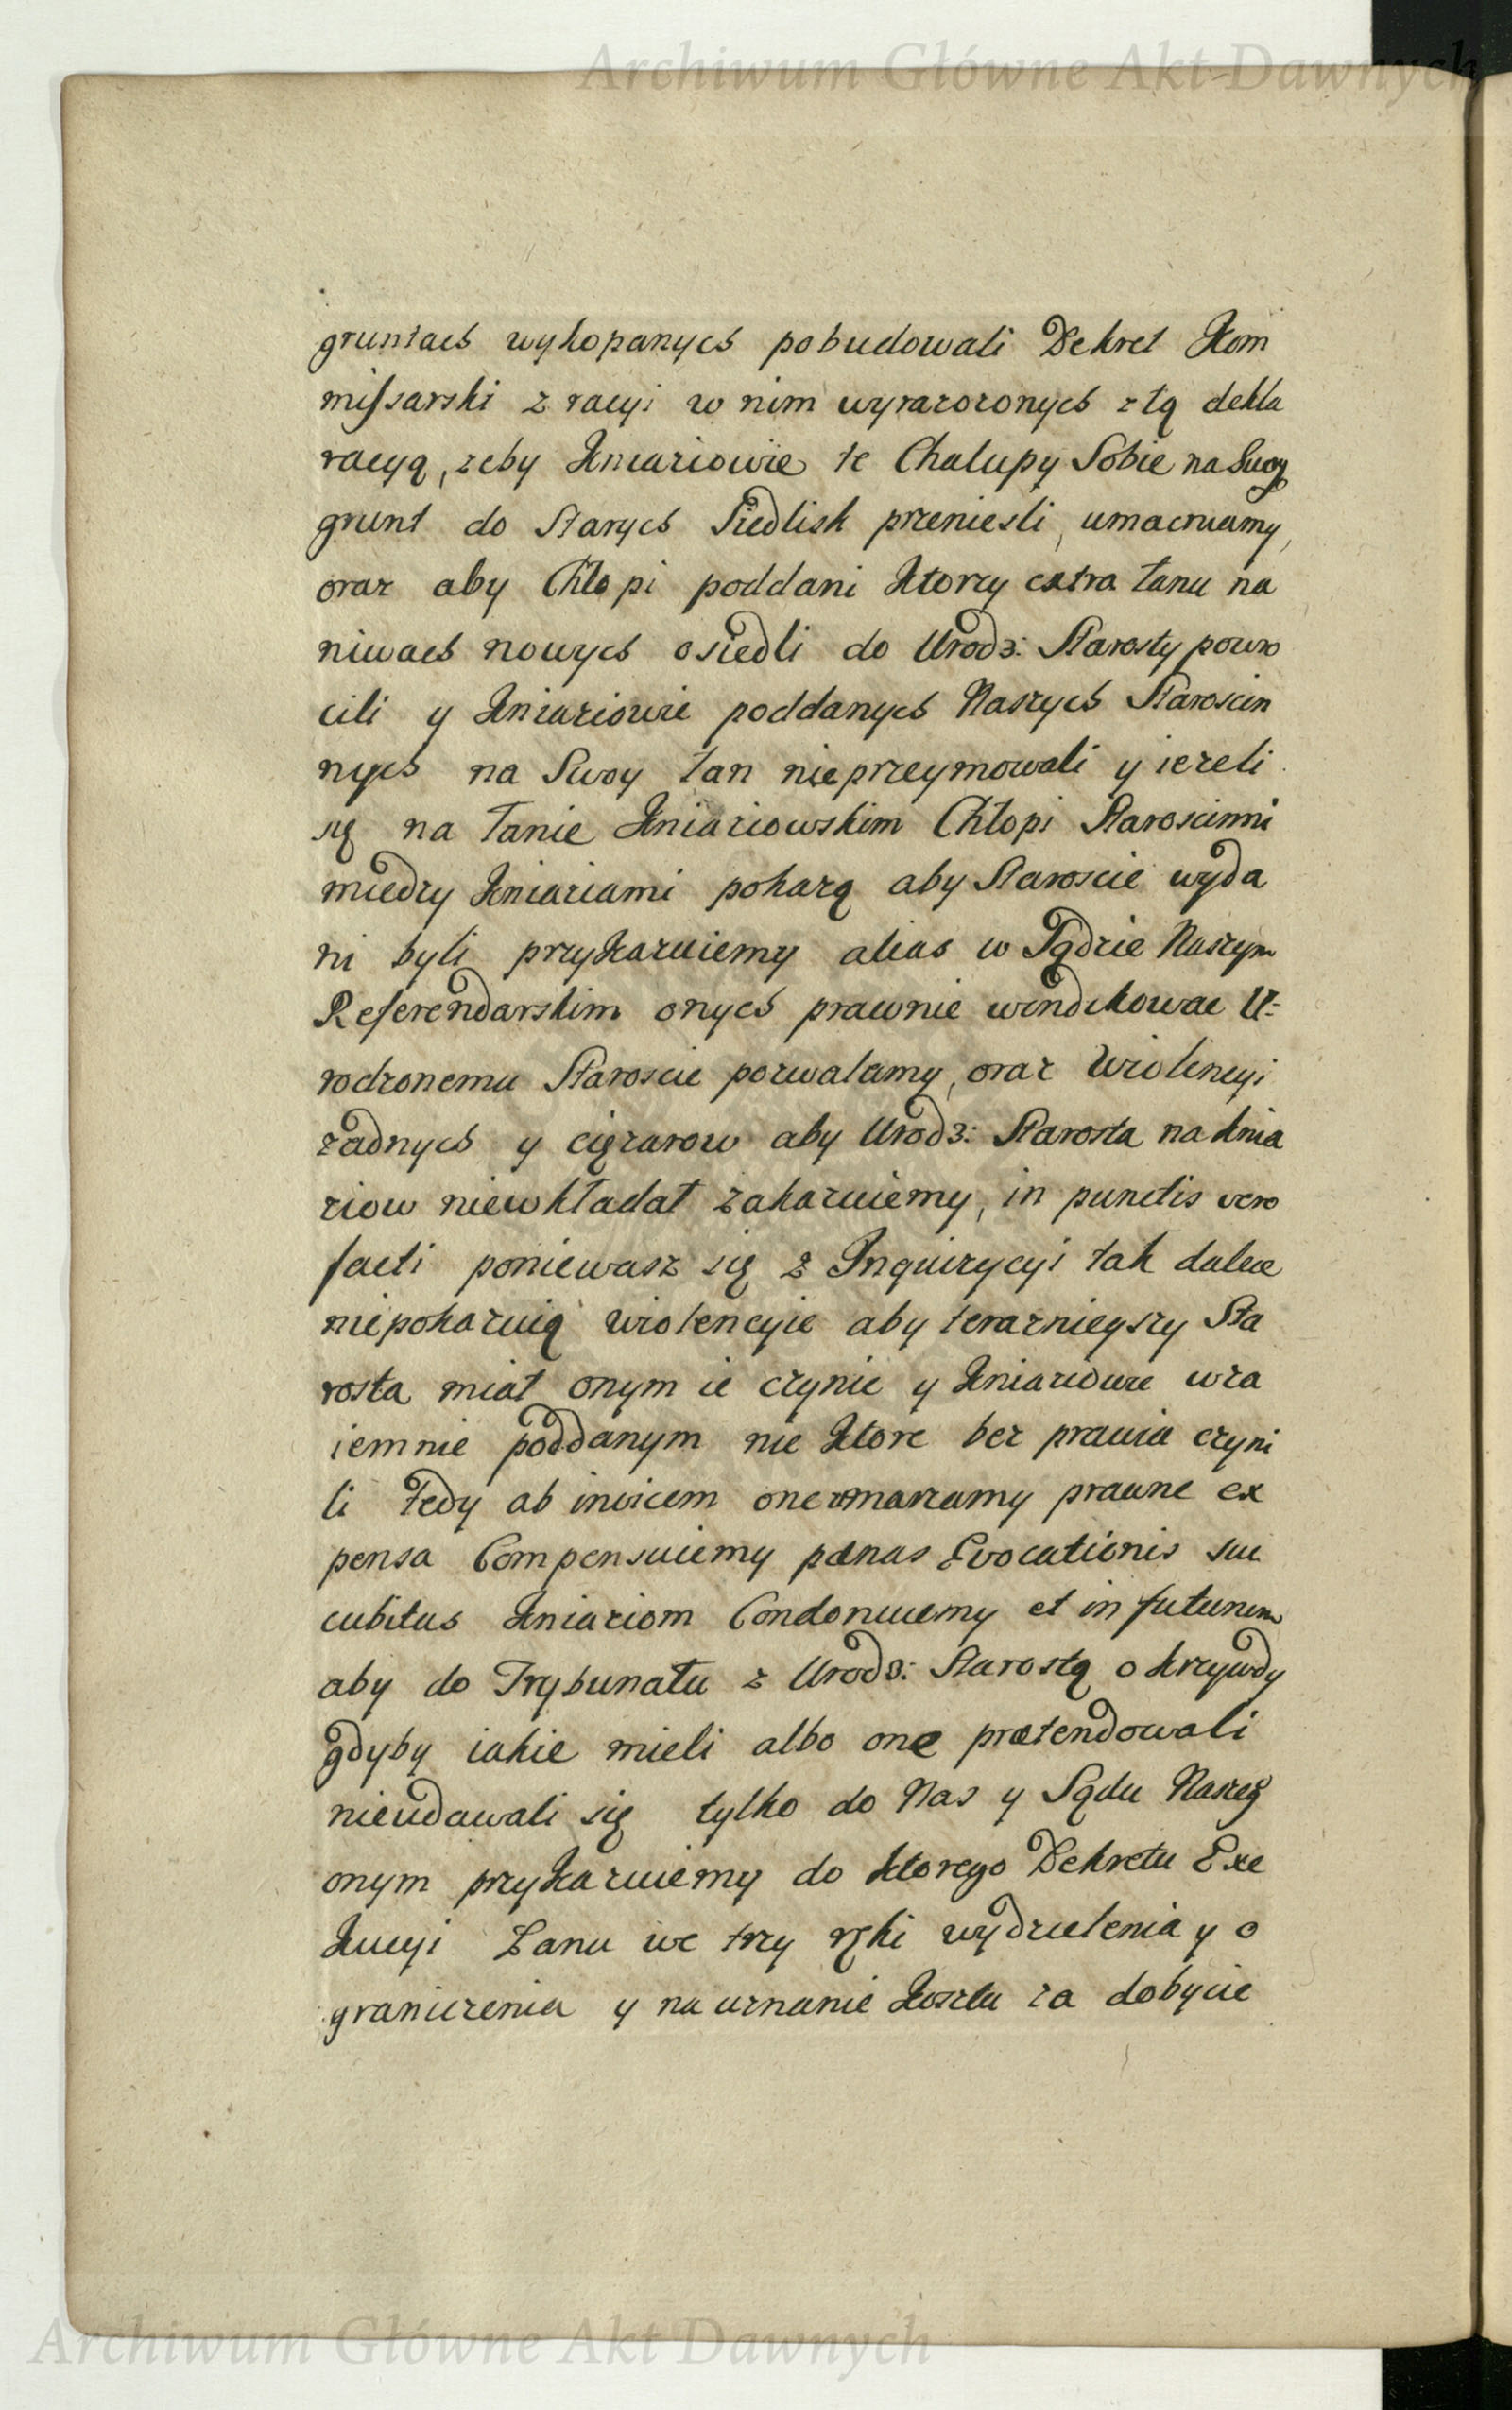 Archiwum Główne Akt Dawnych
gruntach wykopanych pobudowali Dekret Kom
missarski z racyi w nim wyrazoronych z tą dekla
racyą, zeby Kniaziowie te Chalupy Sobie na Swoy
grunt do Starych Siedlisk przeniesli, umacniamy,
oraz aby Chłopi poddani Ktorzy extra łanu na
niwach nowych osiedli do Urodz: Starosty powro
cili y Kniaziowie poddanych Naszych Staroscin
nych na Swoy łan nieprzeymowali y iezeli
się na łanie Kniaziowskim Chłopi Staroscinni
miedzy Kniaziami pokazą aby Staroscie wyda
ni byli przykazuiemy alias w Sądzie Naszym
Referendarskim onych prawnie windikowac U-
rodzonemu Staroscie pozwalamy, oraz Wiolencyi
zadnych y cięzarow aby Urodz: Starosta na knia
ziow niewkładał zakazuiemy, in punctis vero
facti poniewasz się z Inquizycyi tak dalece
niepokazuią wiolencyie aby teraznieyszy Sta
rosta miał onym ie czynic y Kniaziowie wza
iemnie poddanym nie Ktore bez prawia czyni
li Tedy ab invicem one zmarzamy prawne ex
pensa Compensuiemy pænas Evocationis suc
cubitus Kniaziom Condonuiemy et in futurum
aby do Trybunału z Urodz: Starostą o krzywdy
gdyby iakie mieli albo one prætendowali
nieudawali się tylko do Nas y Sądu Naszeg
onym przykazuiemy do ktorego Dekretu Exe
Kucyi Łanu we trzy ręki wydzielenia y o
graniczenia y na uznanie Kosztu za dobycie
Archiwum Główne Akt Dawnych